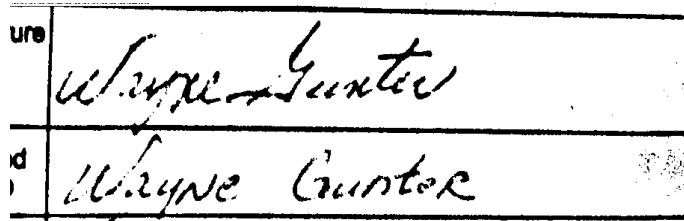 ure
Wayne Gunter
d
Wayne Gunter